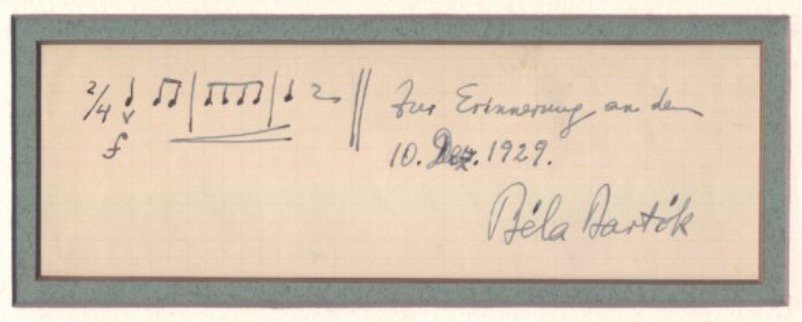 2/4
f
Zur Erinnerung an den
10. Dez. 1929.
Béla Bartók